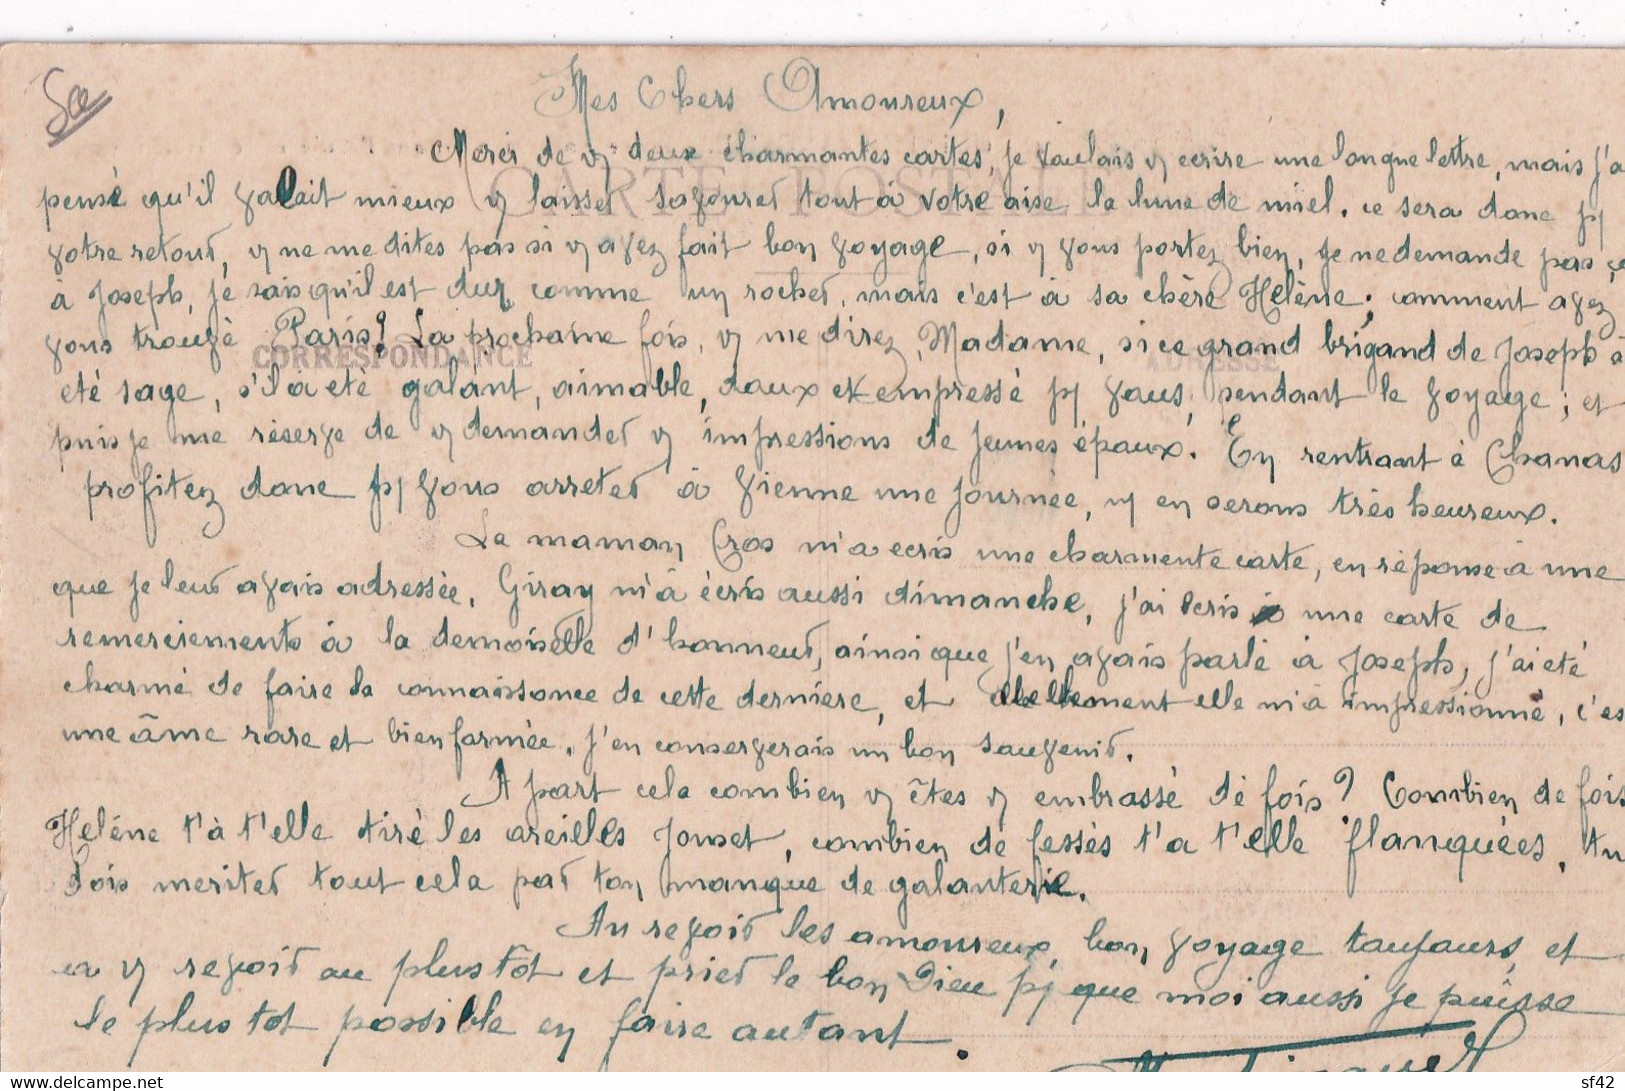 50e
CARTE POSTALE
CORRESPONDANCE
ADRESSE
Mes Chers Amoureux,
Merci de vs deux charmantes cartes, je voulais vs ecrire une longue lettre, mais j'a
pensé qu'il valait mieux vs laisser savourer tout à votre aise la lune de miel. ce sera donc pr
votre retour, vs ne me dites pas si vs avez fait bon voyage, si vs vous portez bien, je ne demande pas ça
à Joseph, je sais qu'il est dur comme un rocher, mais c'est à sa chère Helène; comment avez
vous trouvé Paris? La prochaine fois, vs me direz, Madame, si ce grand brigand de Joseph à
eté sage, s'il à eté galànt, aimable, doux et empressé pr vous, pendant le voyage; et
puis je me réserve de vs demander vs impressions de jeunes épaux. En rentrant à Chanas
profitez donc pr vous arreter à Vienne une journée, ns en serons très heureux.
La maman Cros m'a ecris une charmente carte, en réponse à une
que je leur avais adressée. Giray m'à écris aussi dimanche, j'ai ecris une carte de
remerciements à la demoiselle d'honneur, ainsi que j'en avais parlé à Joseph, j'ai eté
charmé de faire la connaissance de cette dernière, et tellement elle m'à impressionné, c'es
une âme rare et bien formée. j'en conserverais un bon souvenir.
A part cela combien vs êtes vs embrassé de fois? Combien de fois
Helène t'à t'elle tiré les oreilles Jouset, combien de fessés t'a t'elle flanquées, tu
Dois meriter tout cela par ton manque de galanterie.
Au revoir les amoureux, bon voyage toujours, et
a vs revoir au plus tôt et prier le bon Dieu pr que moi aussi je puisse
le plus tot possible en faire autant.
sf42